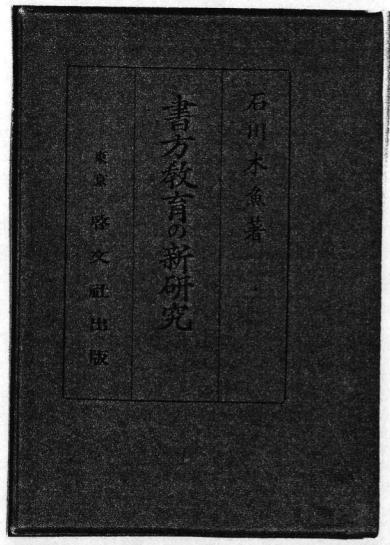 石川木魚著
書方教育の新研究
東京 啓文社出版